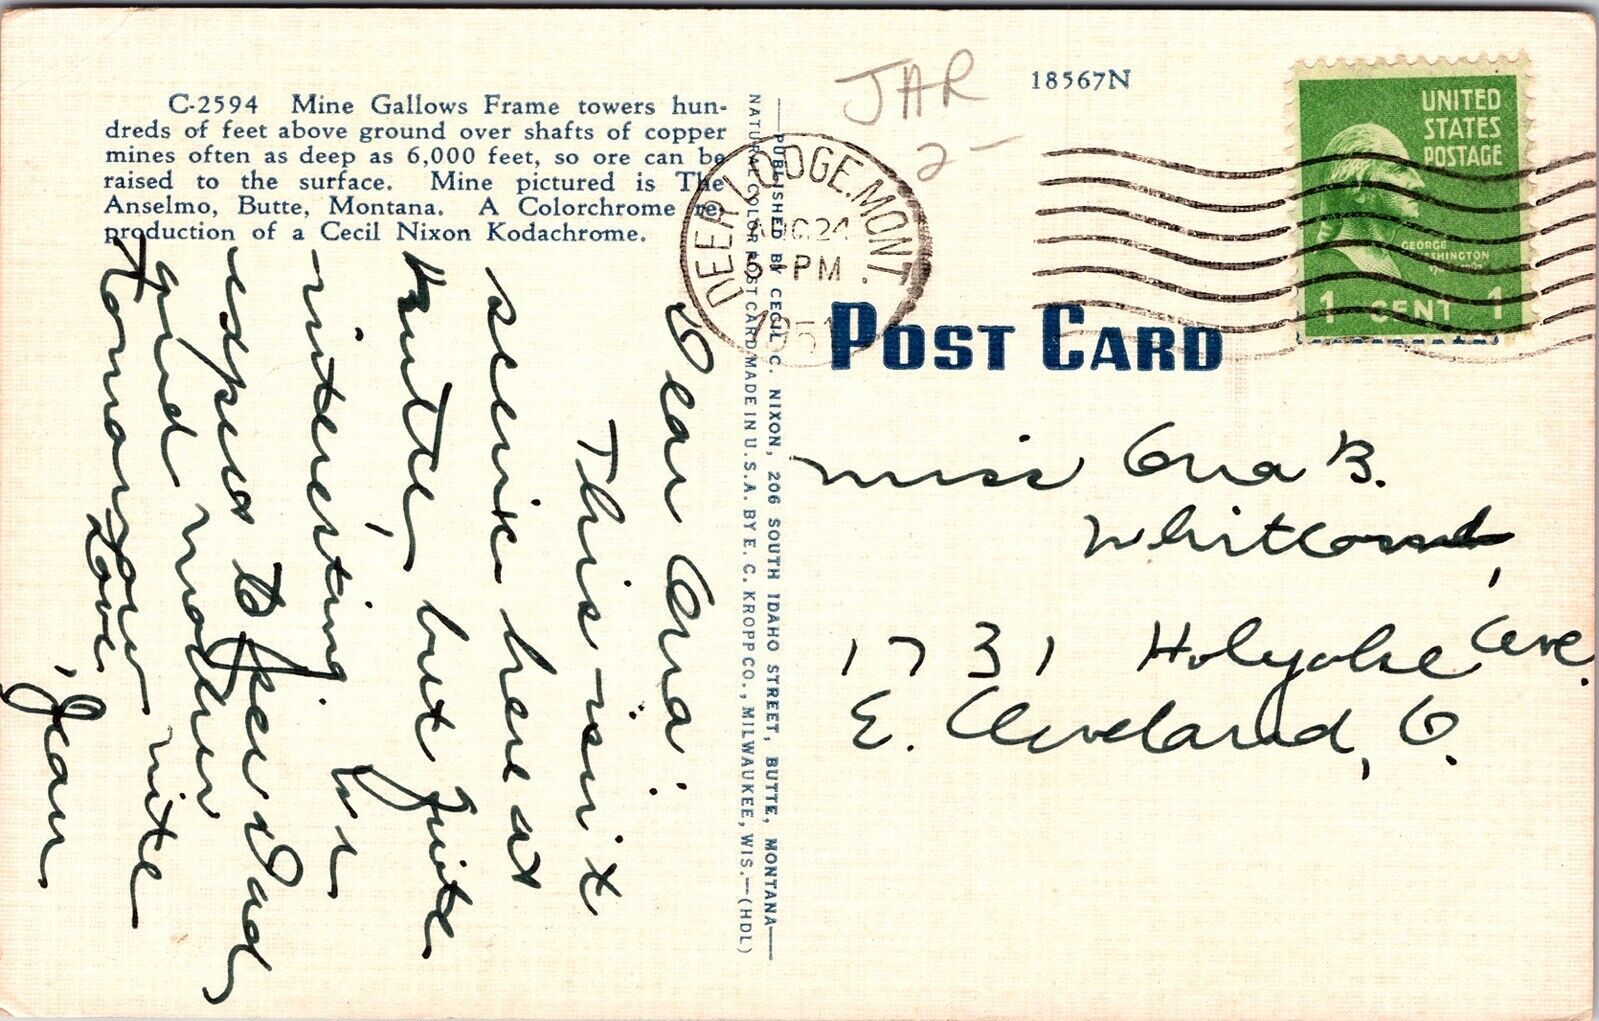 C-2594 Mine Gallows Frame towers hun-
dreds of feet above ground over shafts of copper
mines often as deep as 6,000 feet, so ore can be
raised to the surface. Mine pictured is The
Anselmo, Butte, Montana. A Colorchrome re-
production of a Cecil Nixon Kodachrome.
Dear Ora:
This isn't
scenic here at
Butte, but quite
interesting. We
expect to see Dad
and mother
tomorrow nite
Love,
Jean
—PUBLISHED BY CECIL C. NIXON, 206 SOUTH IDAHO STREET, BUTTE, MONTANA—
NATURAL COLOR POST CARD MADE IN U.S.A. BY E. C. KROPP CO., MILWAUKEE, WIS.—(HDL)
JAR
2-
18567N
DEER LODGE, MONT.
AUG 24
5-PM
1951
UNITED
STATES
POSTAGE
GEORGE
WASHINGTON
1 CENT 1
POST CARD
Miss Ora B.
Whitcomb,
1731 Holyoke Ave.
E. Cleveland, O.